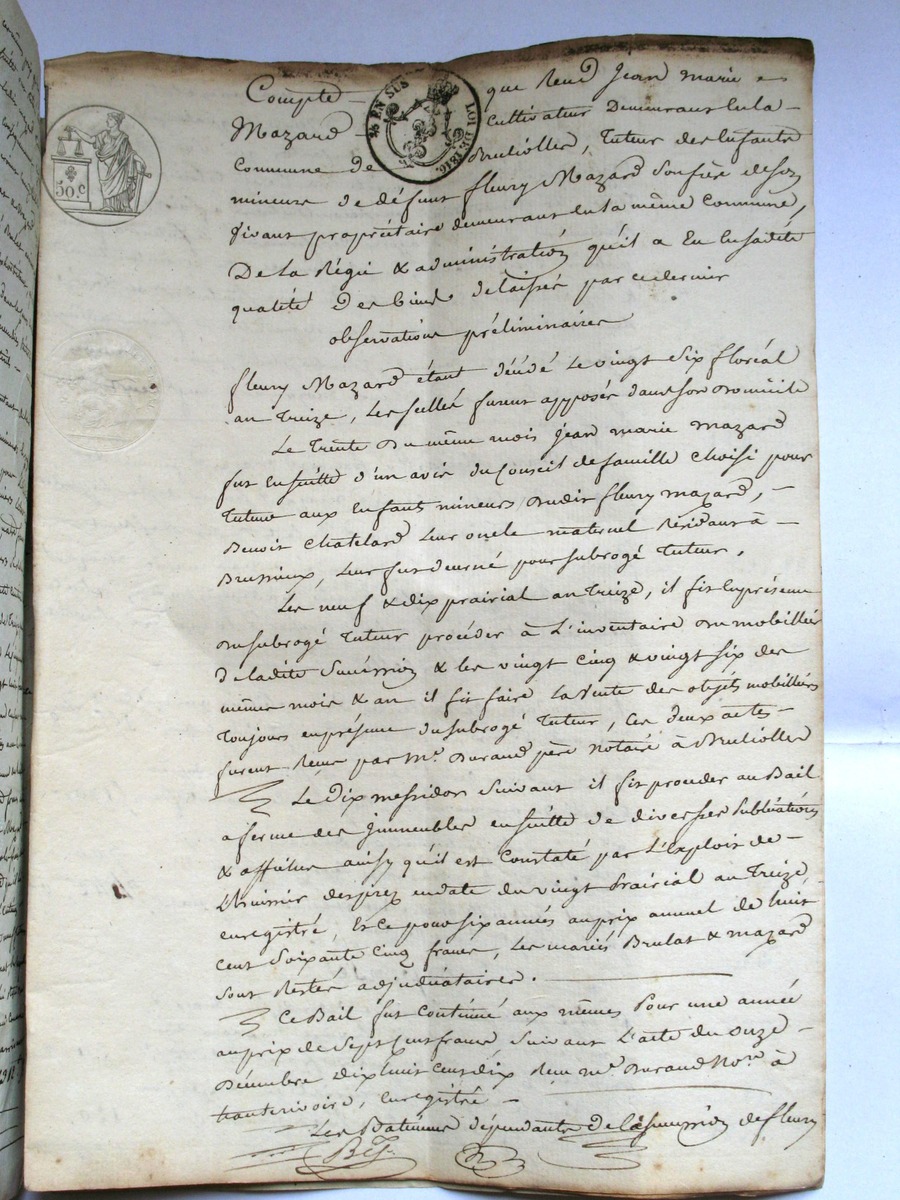 Compte que Rend Jean marie
Mazard cultivateur Demeurant En la
Commune de Brullolles, Tuteur des Enfants
mineurs de défunt fleury Mazard Son frère de Son
Vivant propriétaire demeurant En la même Commune,
De la Régie & administration qu'il a Eu En Sadite
qualité Des biens délaissés par ce dernier
observations préliminaires
fleury Mazard étant décédé Le vingt Six floréal
an Treize, Les scellés furent apposés dans Son Domicile
Le Trente Du même mois Jean marie Mazard
fut Ensuitte d'un avis du Conseil de famille Choisi pour
Tuteur aux Enfants mineurs dudit fleury mazard,
Benoit Chatelard Leur oncle maternel Résidant à
Brussieux, Leur fut donné pour subrogé Tuteur,
Les neuf & dix prairial an Treize, il fit En présence
du subrogé Tuteur procéder à L'inventaire du mobillier
De ladite Succession & les vingt cinq & vingt six des
mêmes mois & an il fit faire La vente des objets mobilliers
Toujours en présence du subrogé Tuteur, Ces deux actes
furent Reçus par Me. Durand père Notaire à Brullolles
Le Dix messidor Suivant il fit procéder au Bail
à ferme des Immeubles ensuitte de diverses Publications
& affiches ainsy qu'il est Constaté par L'Exploit de
L'huissier desprez en date du vingt Prairial an Treize
enregistré, Et Ce pour six années au prix annuel de huit
cent Soixante Cinq francs, Les mariés Brulat & mazard
Sont Restés adjudicataires.
Ce Bail fut Continué aux mêmes Pour une année
au prix de Sept Cent francs Suivant L'acte du onze
Décembre dix huit Cent dix Reçu me. Durand No.re à
hauterivoire, Enregistré
Les Batiments dépendants de la Succession de fleury
25 EN SUS
LOI DE 1816.
50. c